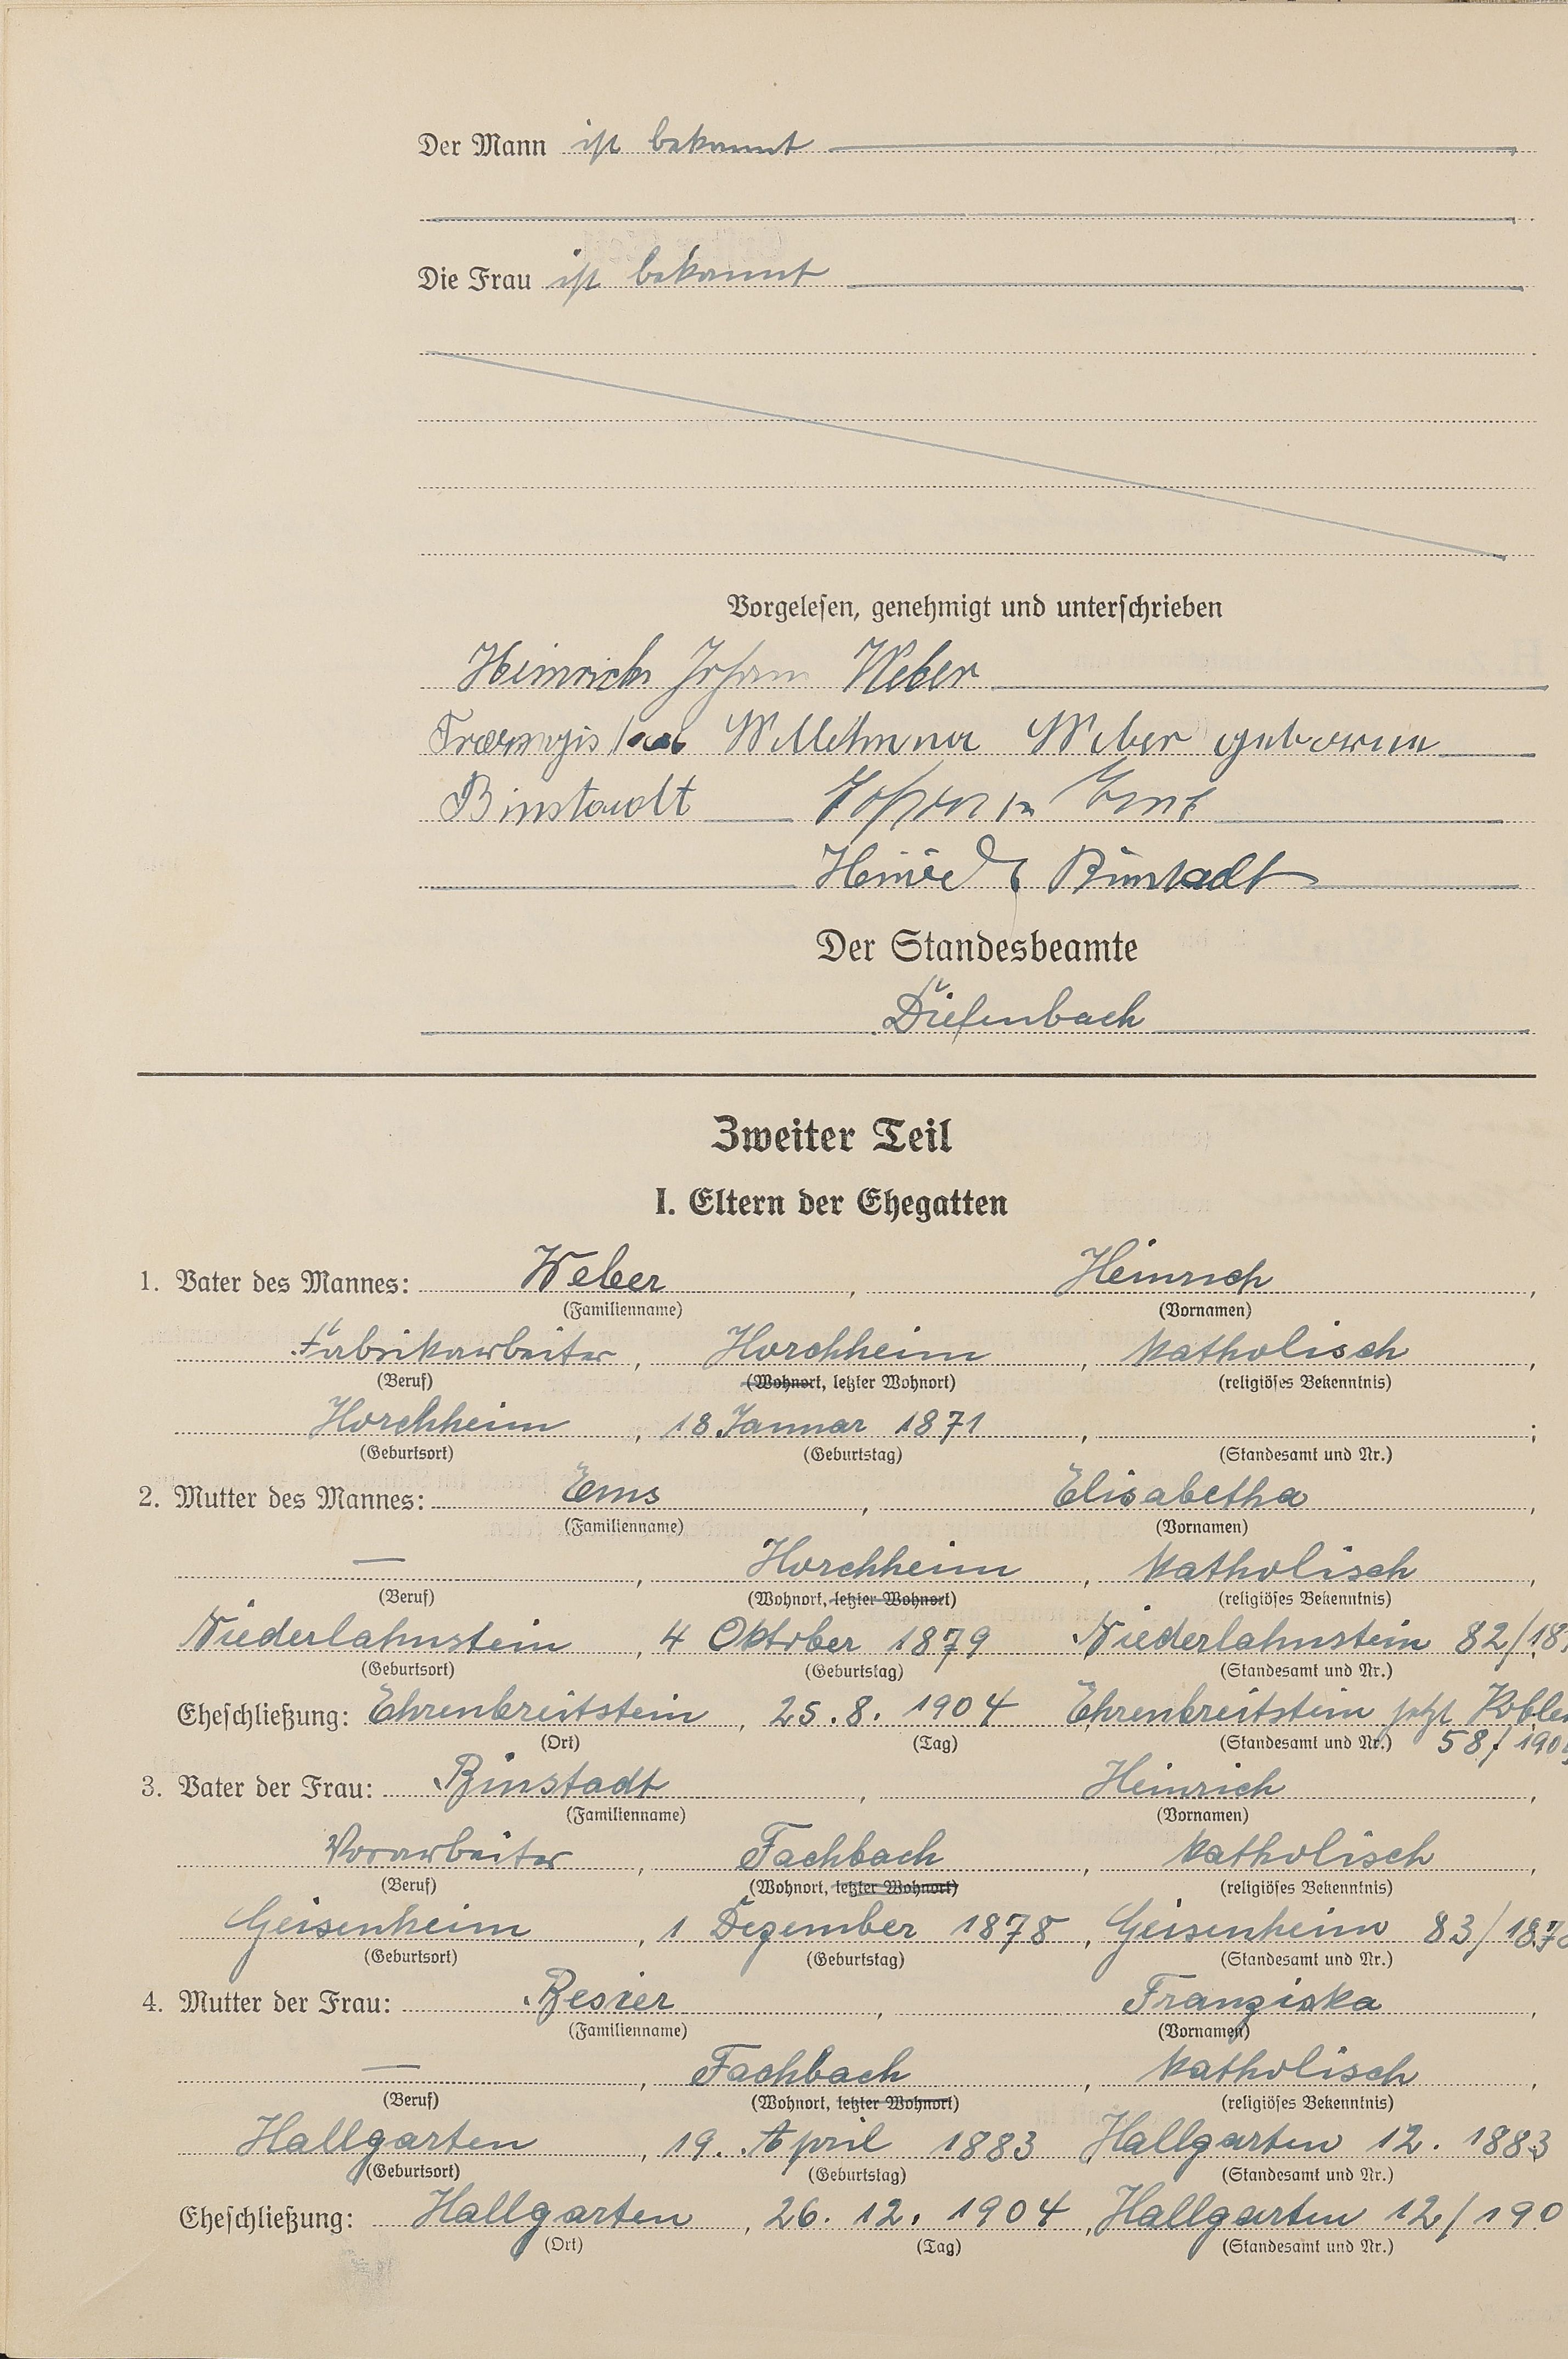 Der Mann ist bekannt
Die Frau ist bekannt
Vorgelesen, genehmigt und unterschrieben
Heinrich Johann Weber
Wilhelmina Weber geborene
Binstadt Johann Ems
Heinrich Binstadt
Der Standesbeamte
Diefenbach
Zweiter Teil
I. Eltern der Ehegatten
1. Vater des Mannes: Weber, Heinrich,
(Familienname) (Vornamen)
Fabrikarbeiter, Horchheim, katholisch,
(Beruf) (Wohnort, letzter Wohnort) (religiöses Bekenntnis)
Horchheim, 18. Januar 1871, ;
(Geburtsort) (Geburtstag) (Standesamt und Nr.)
2. Mutter des Mannes: Ems, Elisabetha,
(Familienname) (Vornamen)
—, Horchheim, katholisch,
(Beruf) (Wohnort, letzter Wohnort) (religiöses Bekenntnis)
Niederlahnstein, 4 Oktober 1879 Niederlahnstein 82/18
(Geburtsort) (Geburtstag) (Standesamt und Nr.)
Eheschließung: Ehrenbreitstein, 25. 8. 1904 Ehrenbreitstein jetzt Koblen
(Ort) (Tag) (Standesamt und Nr.) 58/190
3. Vater der Frau: Binstadt, Heinrich,
(Familienname) (Vornamen)
Vorarbeiter, Fachbach, katholisch,
(Beruf) (Wohnort, letzter Wohnort) (religiöses Bekenntnis)
Geisenheim, 1 Dezember 1878, Geisenheim 83/1878
(Geburtsort) (Geburtstag) (Standesamt und Nr.)
4. Mutter der Frau: Besier, Franziska,
(Familienname) (Vornamen)
—, Fachbach, katholisch,
(Beruf) (Wohnort, letzter Wohnort) (religiöses Bekenntnis)
Hallgarten, 19. April 1883 Hallgarten 12. 1883
(Geburtsort) (Geburtstag) (Standesamt und Nr.)
Eheschließung: Hallgarten, 26. 12. 1904, Hallgarten 12/190
(Ort) (Tag) (Standesamt und Nr.)